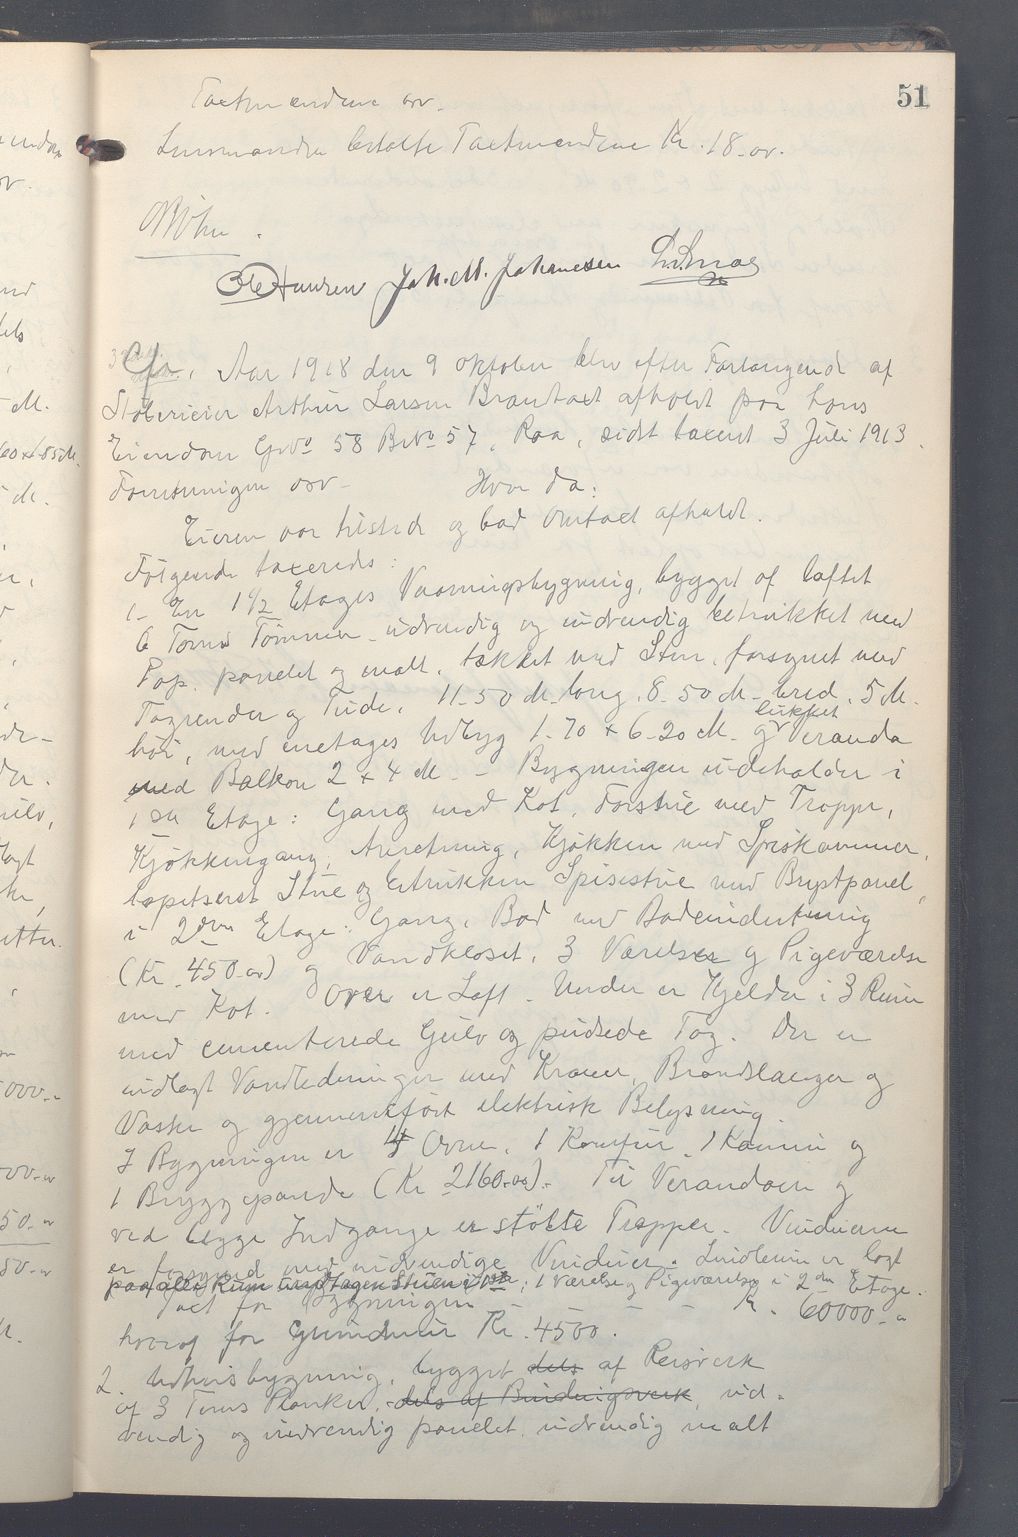 51
Taxtmændene osv.
Lensmanden betalte Taxtmændene Kr. 18-oo.
Ole Hansen Joh. M. Johannesen
Aar 1918 den 9 oktober blev efter Forlangende af
Skibereier Arthur Larsen Brantaxt afholdt paa hans
Eiendom Gr No 58 Br No 57, Raa, sidst taxeret 3 Juli 1913.
Forretningen osv- Hvor da:
Eieren var tilstede og bad Omtaxt afholdt.
Følgende taxeredes:
1- En 1 1/2 Etages Vaaningsbygning, bygget af laftet
6 Toms Tømmer, udvendig og indvendig betrukket med
Pap, panelet og malt, tækket med Sten, forsynet med
Tagrender og Tude, 11-50 M. lang, 8-50 M- bred, 5 M.
høi, med enetages Udbyg 1-70 + 6-20 M- og lukket Veranda
med Balkon 2 + 4 M - - Bygningen indeholder i
1ste Etage: Gang med Kot, Forstue med Trappe,
Kjøkkengang, Anretning, Kjøkken med Spiskammer,
tapetseret Stue og betrukken Spisestue med Brystpanel,
i 2den Etage: Gang, Bad med Badeindretning
(Kr. 450-oo) og Vandkloset, 3 Værelser og Pigeværelse
med Kot. Over er Loft. Under er Kjelder i 3 Rum
med cementerede Gulv og pudsede Tag. Der er
indlagt Vandledninger med Kraner, Brandslanger og
Vaske og gjennemført elektrisk Belysning.
I Bygningen er 4 Ovne, 1 Komfur, 1 Kamin og
1 Bryggepande (Kr 2160-oo). Til Verandaen og
ved begge Indgange er støbte Trapper. Vinduerne
er forsynet med indvendige Vinduer. Linoleum er lagt
paa alle Rum undtagen Stuen i 1ste, 1 Værelse og Pigeværelse i 2den Etage.
Taxt for Bygningen - - - - Kr. 60000-"
hvoraf for Grundmur Kr. 4500.
2. Udhusbygning, bygget dels af Reisverk
af 3 Toms Planker, dels af Bindingsverk, ud-
vendig og indvendig panelet, udvendig malt